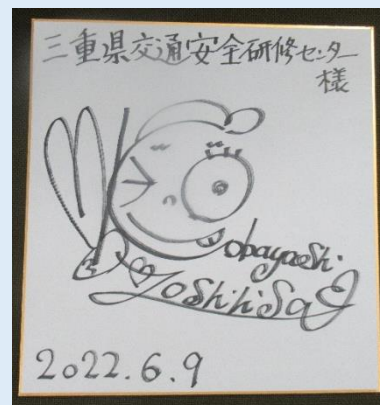 三重県交通安全研修センター
様
Kobayashi
Yoshihisa
2022.6.9